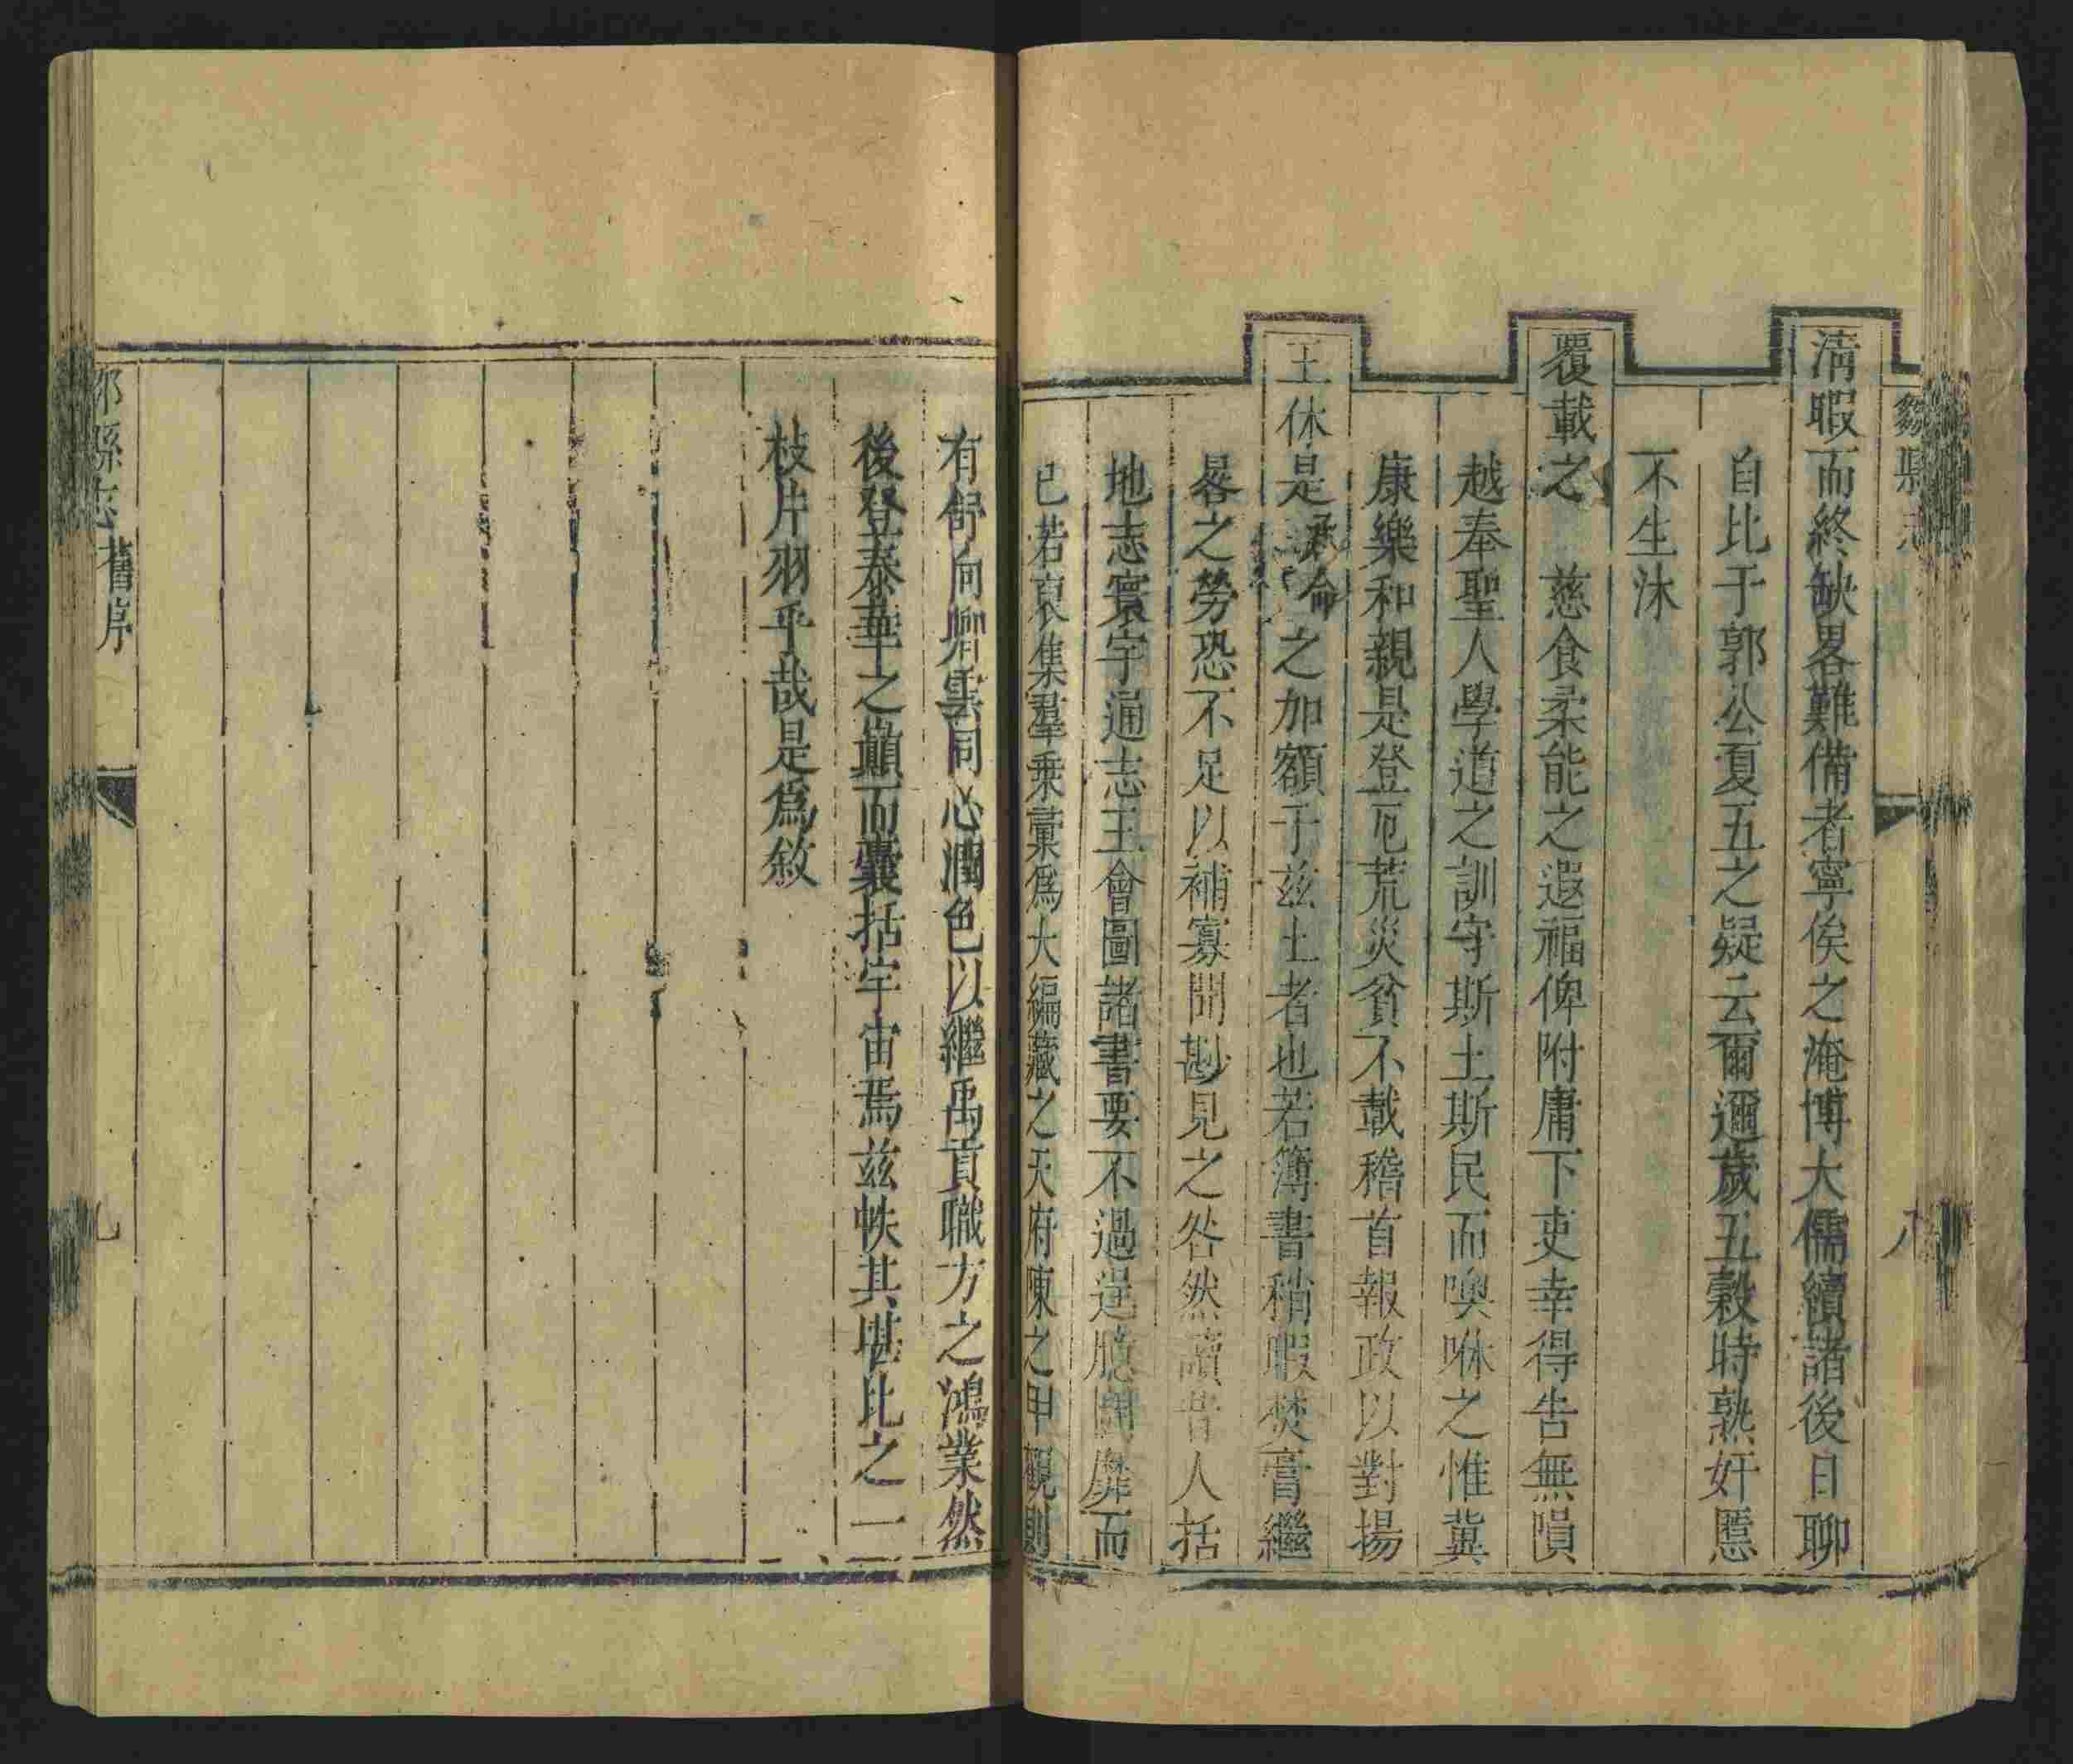 鄒縣志
八
淸暇而終缺畧難備者寧俟之淹博大儒續諸後日聊
自比于郭公夏五之疑云爾邇歲五穀時熟奸慝
不生沐
覆載之 慈食柔能之遐福俾附庸下吏幸得告無隕
越奉聖人學道之訓守斯土斯民而噢咻之惟冀
康樂和親是登厄荒災貧不載稽首報政以對揚
王休是承命之加額于兹土者也若簿書稍暇焚膏繼
晷之勞恐不足以補寡聞尠見之咎然讀昔人括
地志寰宇通志王會圖諸書要不過逞臆鬭靡而
已若裒集羣乘彙爲大編藏之天府陳之甲觀則
有舒向卿雲同心潤色以繼禹貢職方之鴻業然
後登泰華之巔而囊括宇宙焉兹帙其堪比之一
枝片羽乎哉是爲敘
縣志 舊序
九